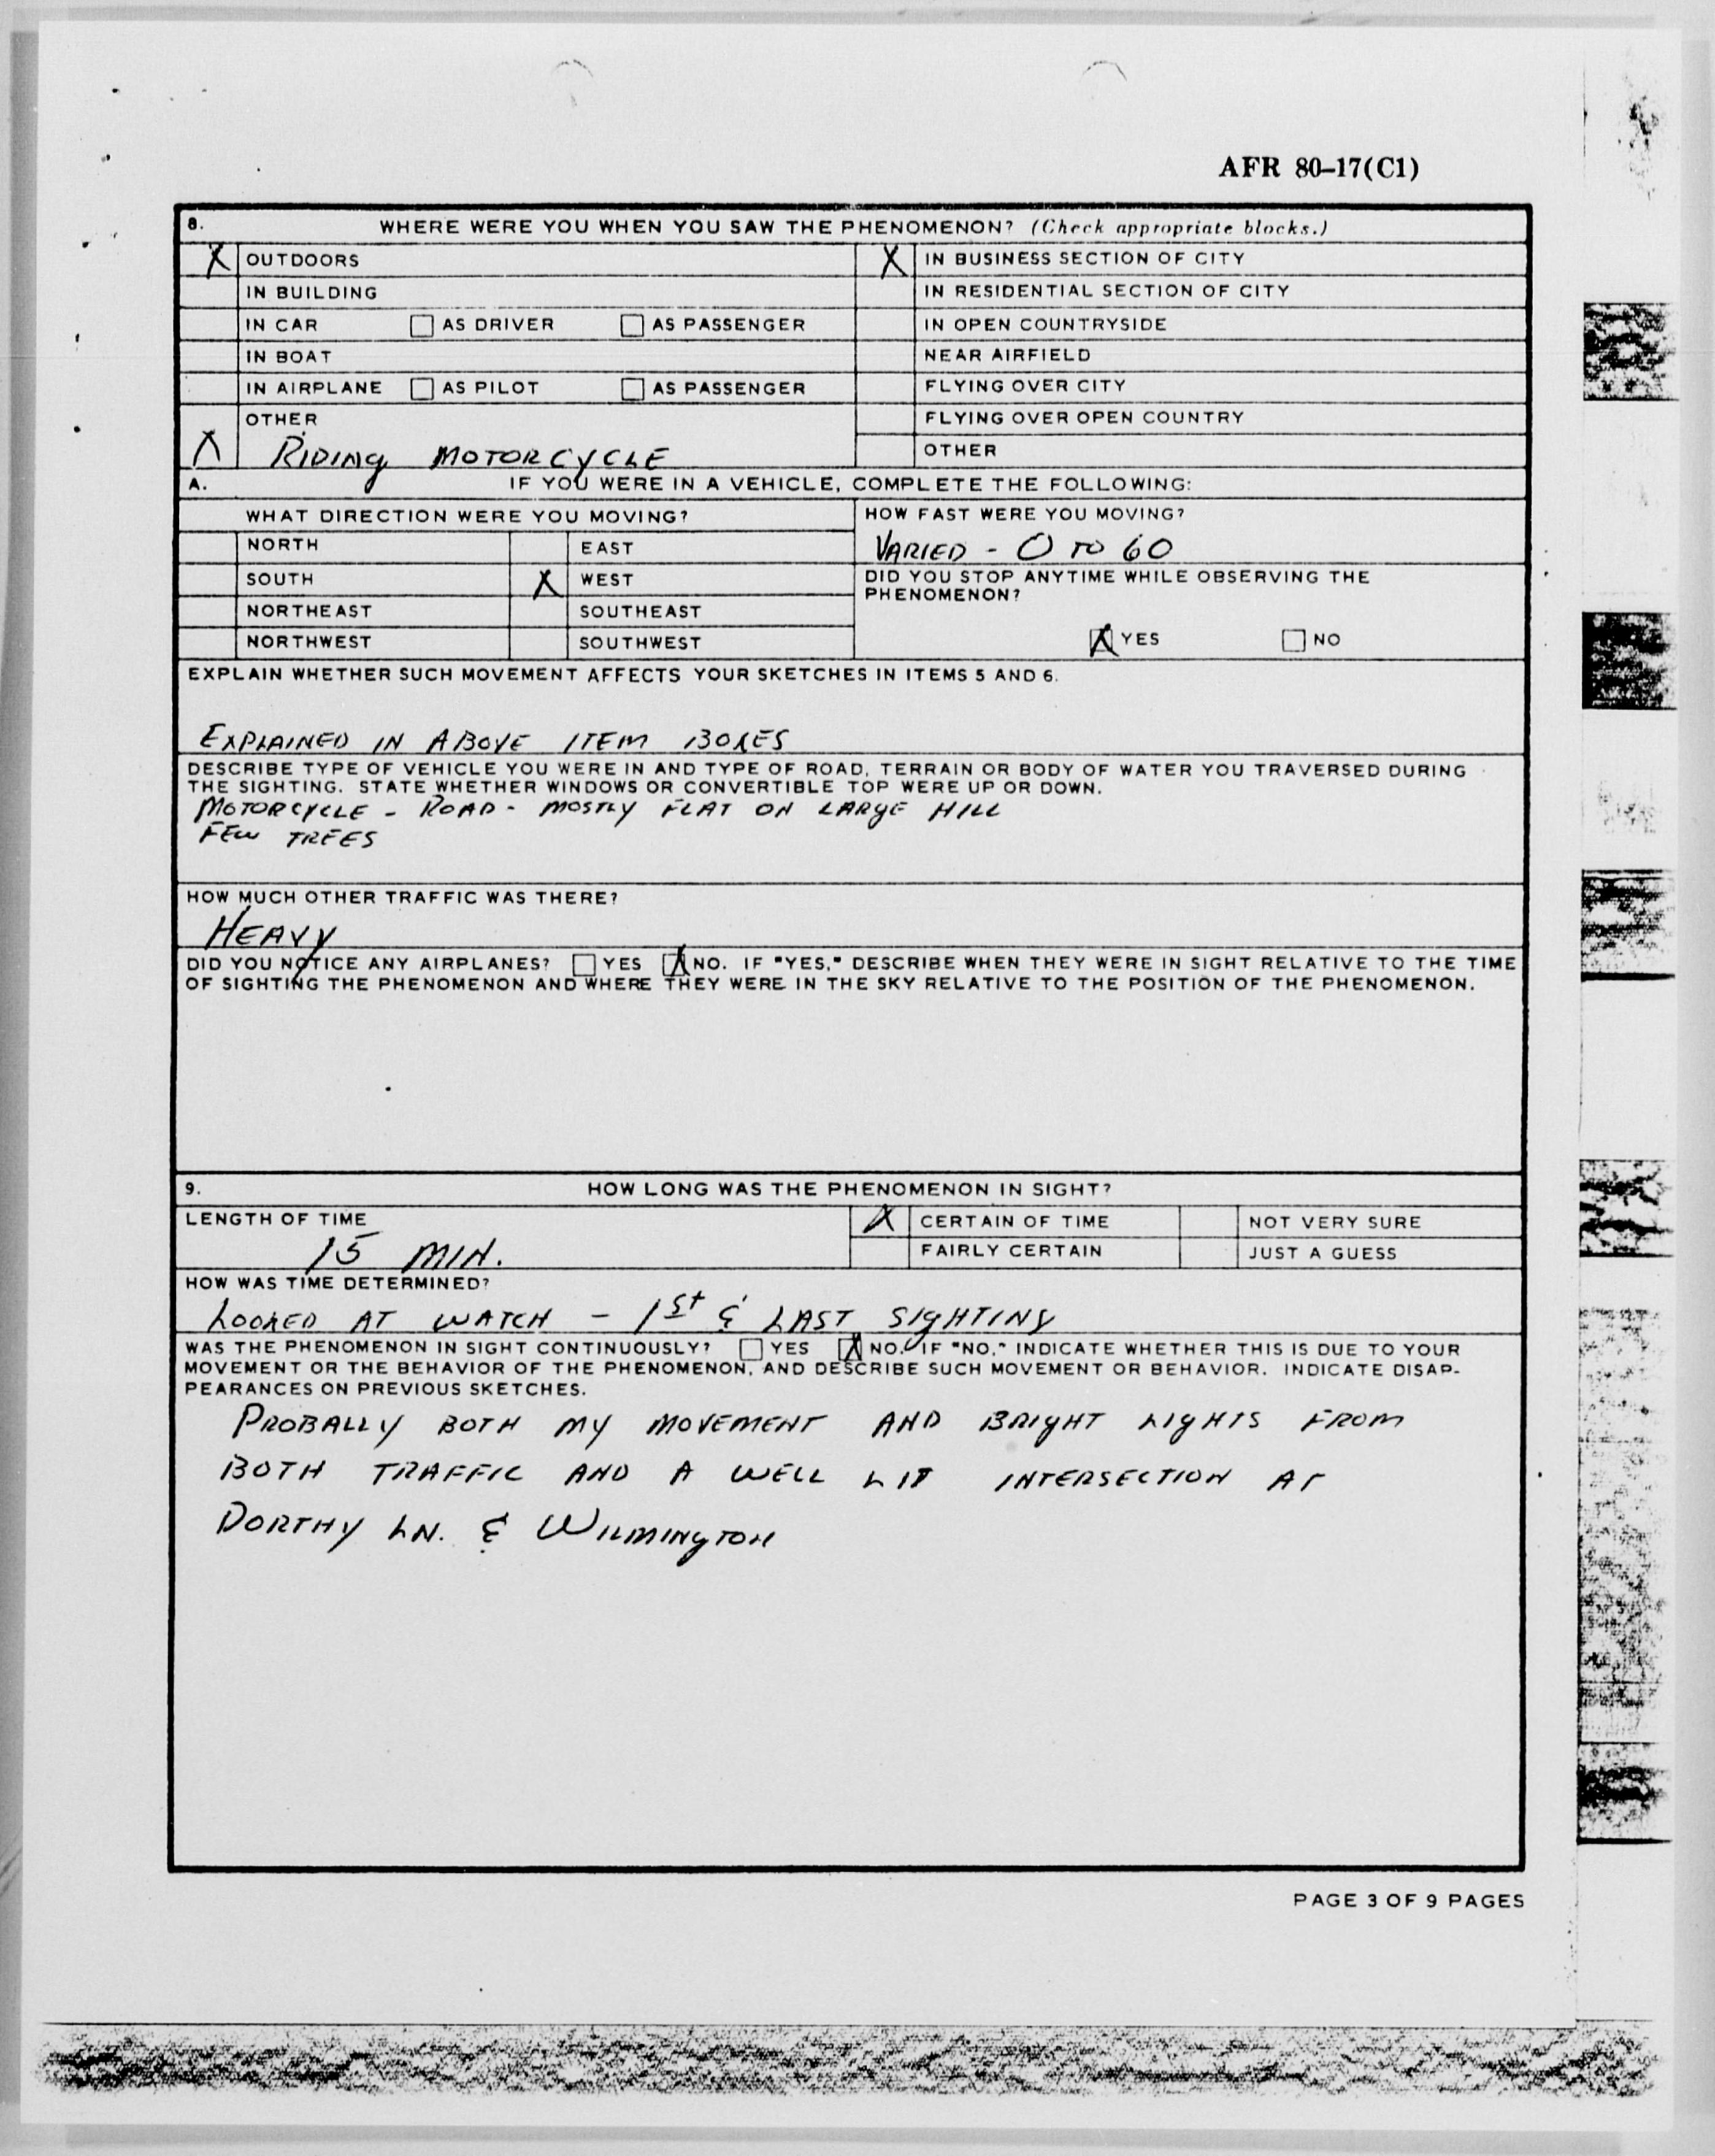 AFR 80–17(C1)
8. WHERE WERE YOU WHEN YOU SAW THE PHENOMENON? (Check appropriate blocks.)
X OUTDOORS X IN BUSINESS SECTION OF CITY
IN BUILDING IN RESIDENTIAL SECTION OF CITY
IN CAR ☐ AS DRIVER ☐ AS PASSENGER IN OPEN COUNTRYSIDE
IN BOAT NEAR AIRFIELD
IN AIRPLANE ☐ AS PILOT ☐ AS PASSENGER FLYING OVER CITY
OTHER FLYING OVER OPEN COUNTRY
X RIDING MOTORCYCLE OTHER
A. IF YOU WERE IN A VEHICLE, COMPLETE THE FOLLOWING:
WHAT DIRECTION WERE YOU MOVING? HOW FAST WERE YOU MOVING?
NORTH EAST VARIED - 0 TO 60
SOUTH X WEST DID YOU STOP ANYTIME WHILE OBSERVING THE
PHENOMENON?
NORTHEAST SOUTHEAST
NORTHWEST SOUTHWEST X YES ☐ NO
EXPLAIN WHETHER SUCH MOVEMENT AFFECTS YOUR SKETCHES IN ITEMS 5 AND 6.
EXPLAINED IN ABOVE ITEM BOXES
DESCRIBE TYPE OF VEHICLE YOU WERE IN AND TYPE OF ROAD, TERRAIN OR BODY OF WATER YOU TRAVERSED DURING
THE SIGHTING. STATE WHETHER WINDOWS OR CONVERTIBLE TOP WERE UP OR DOWN.
MOTORCYCLE - ROAD - MOSTLY FLAT ON LARGE HILL
FEW TREES
HOW MUCH OTHER TRAFFIC WAS THERE?
HEAVY
DID YOU NOTICE ANY AIRPLANES? ☐ YES X NO. IF "YES," DESCRIBE WHEN THEY WERE IN SIGHT RELATIVE TO THE TIME
OF SIGHTING THE PHENOMENON AND WHERE THEY WERE IN THE SKY RELATIVE TO THE POSITION OF THE PHENOMENON.
9. HOW LONG WAS THE PHENOMENON IN SIGHT?
LENGTH OF TIME X CERTAIN OF TIME NOT VERY SURE
15 MIN. FAIRLY CERTAIN JUST A GUESS
HOW WAS TIME DETERMINED?
LOOKED AT WATCH - 1st & LAST SIGHTING
WAS THE PHENOMENON IN SIGHT CONTINUOUSLY? ☐ YES X NO. IF "NO," INDICATE WHETHER THIS IS DUE TO YOUR
MOVEMENT OR THE BEHAVIOR OF THE PHENOMENON, AND DESCRIBE SUCH MOVEMENT OR BEHAVIOR. INDICATE DISAP-
PEARANCES ON PREVIOUS SKETCHES.
PROBALLY BOTH MY MOVEMENT AND BRIGHT LIGHTS FROM
BOTH TRAFFIC AND A WELL LIT INTERSECTION AT
DORTHY LN. & WILMINGTON
PAGE 3 OF 9 PAGES